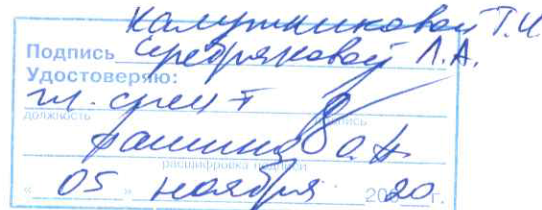 Калужниковой Т.И
Подпись Серебряковой Л.А.
Удостоверяю:
гл. спец
должность подпись
расшифровка подписи
« 05 » ноября 2020 г.